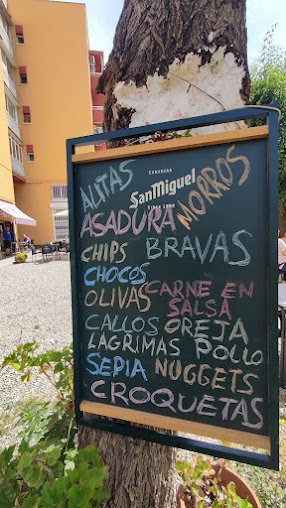 CERVEZAS
San Miguel
SINCE 1890
ALITAS
MORROS
ASADURA
CHIPS BRAVAS
CHOCOS
OLIVAS CARNE EN
SALSA
CALLOS OREJA
LAGRIMAS POLLO
SEPIA NUGGETS
CROQUETAS